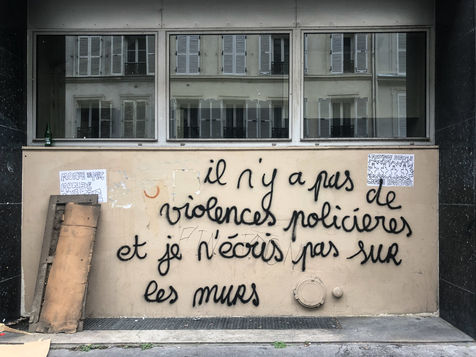 il n'y a pas de
violences policieres
et je n'écris pas sur
les murs